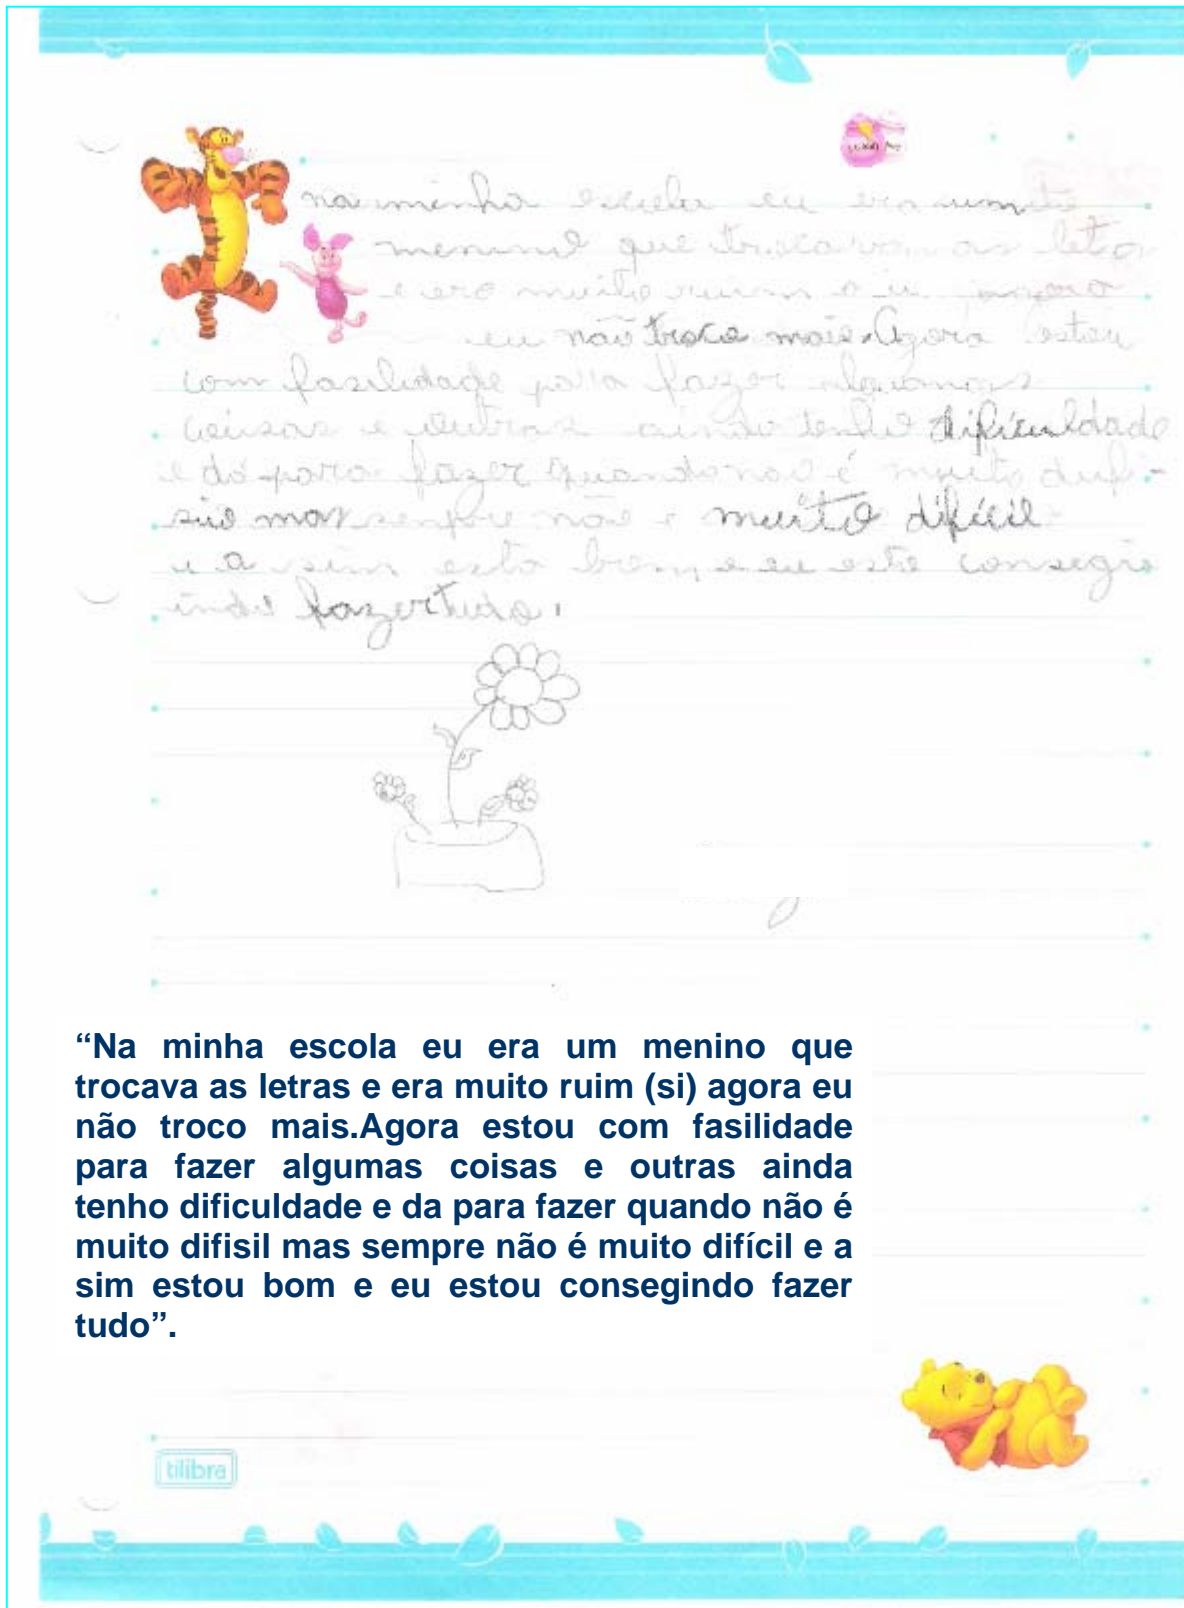 na minha escola eu era um
menino que trocava as leta
e era muito ruim
eu não troco mais. Agora estou
com fasilidade para fazer algumas
coisas e outras ainda tenho dificuldade
e da para fazer quando não é muito difi-
sio mas sempre não e muito difícil
e a sim esto bom e eu esto consegio
indo fazer tudo.
“Na minha escola eu era um menino que
trocava as letras e era muito ruim (si) agora eu
não troco mais.Agora estou com fasilidade
para fazer algumas coisas e outras ainda
tenho dificuldade e da para fazer quando não é
muito difisil mas sempre não é muito difícil e a
sim estou bom e eu estou consegindo fazer
tudo”.
tilibra